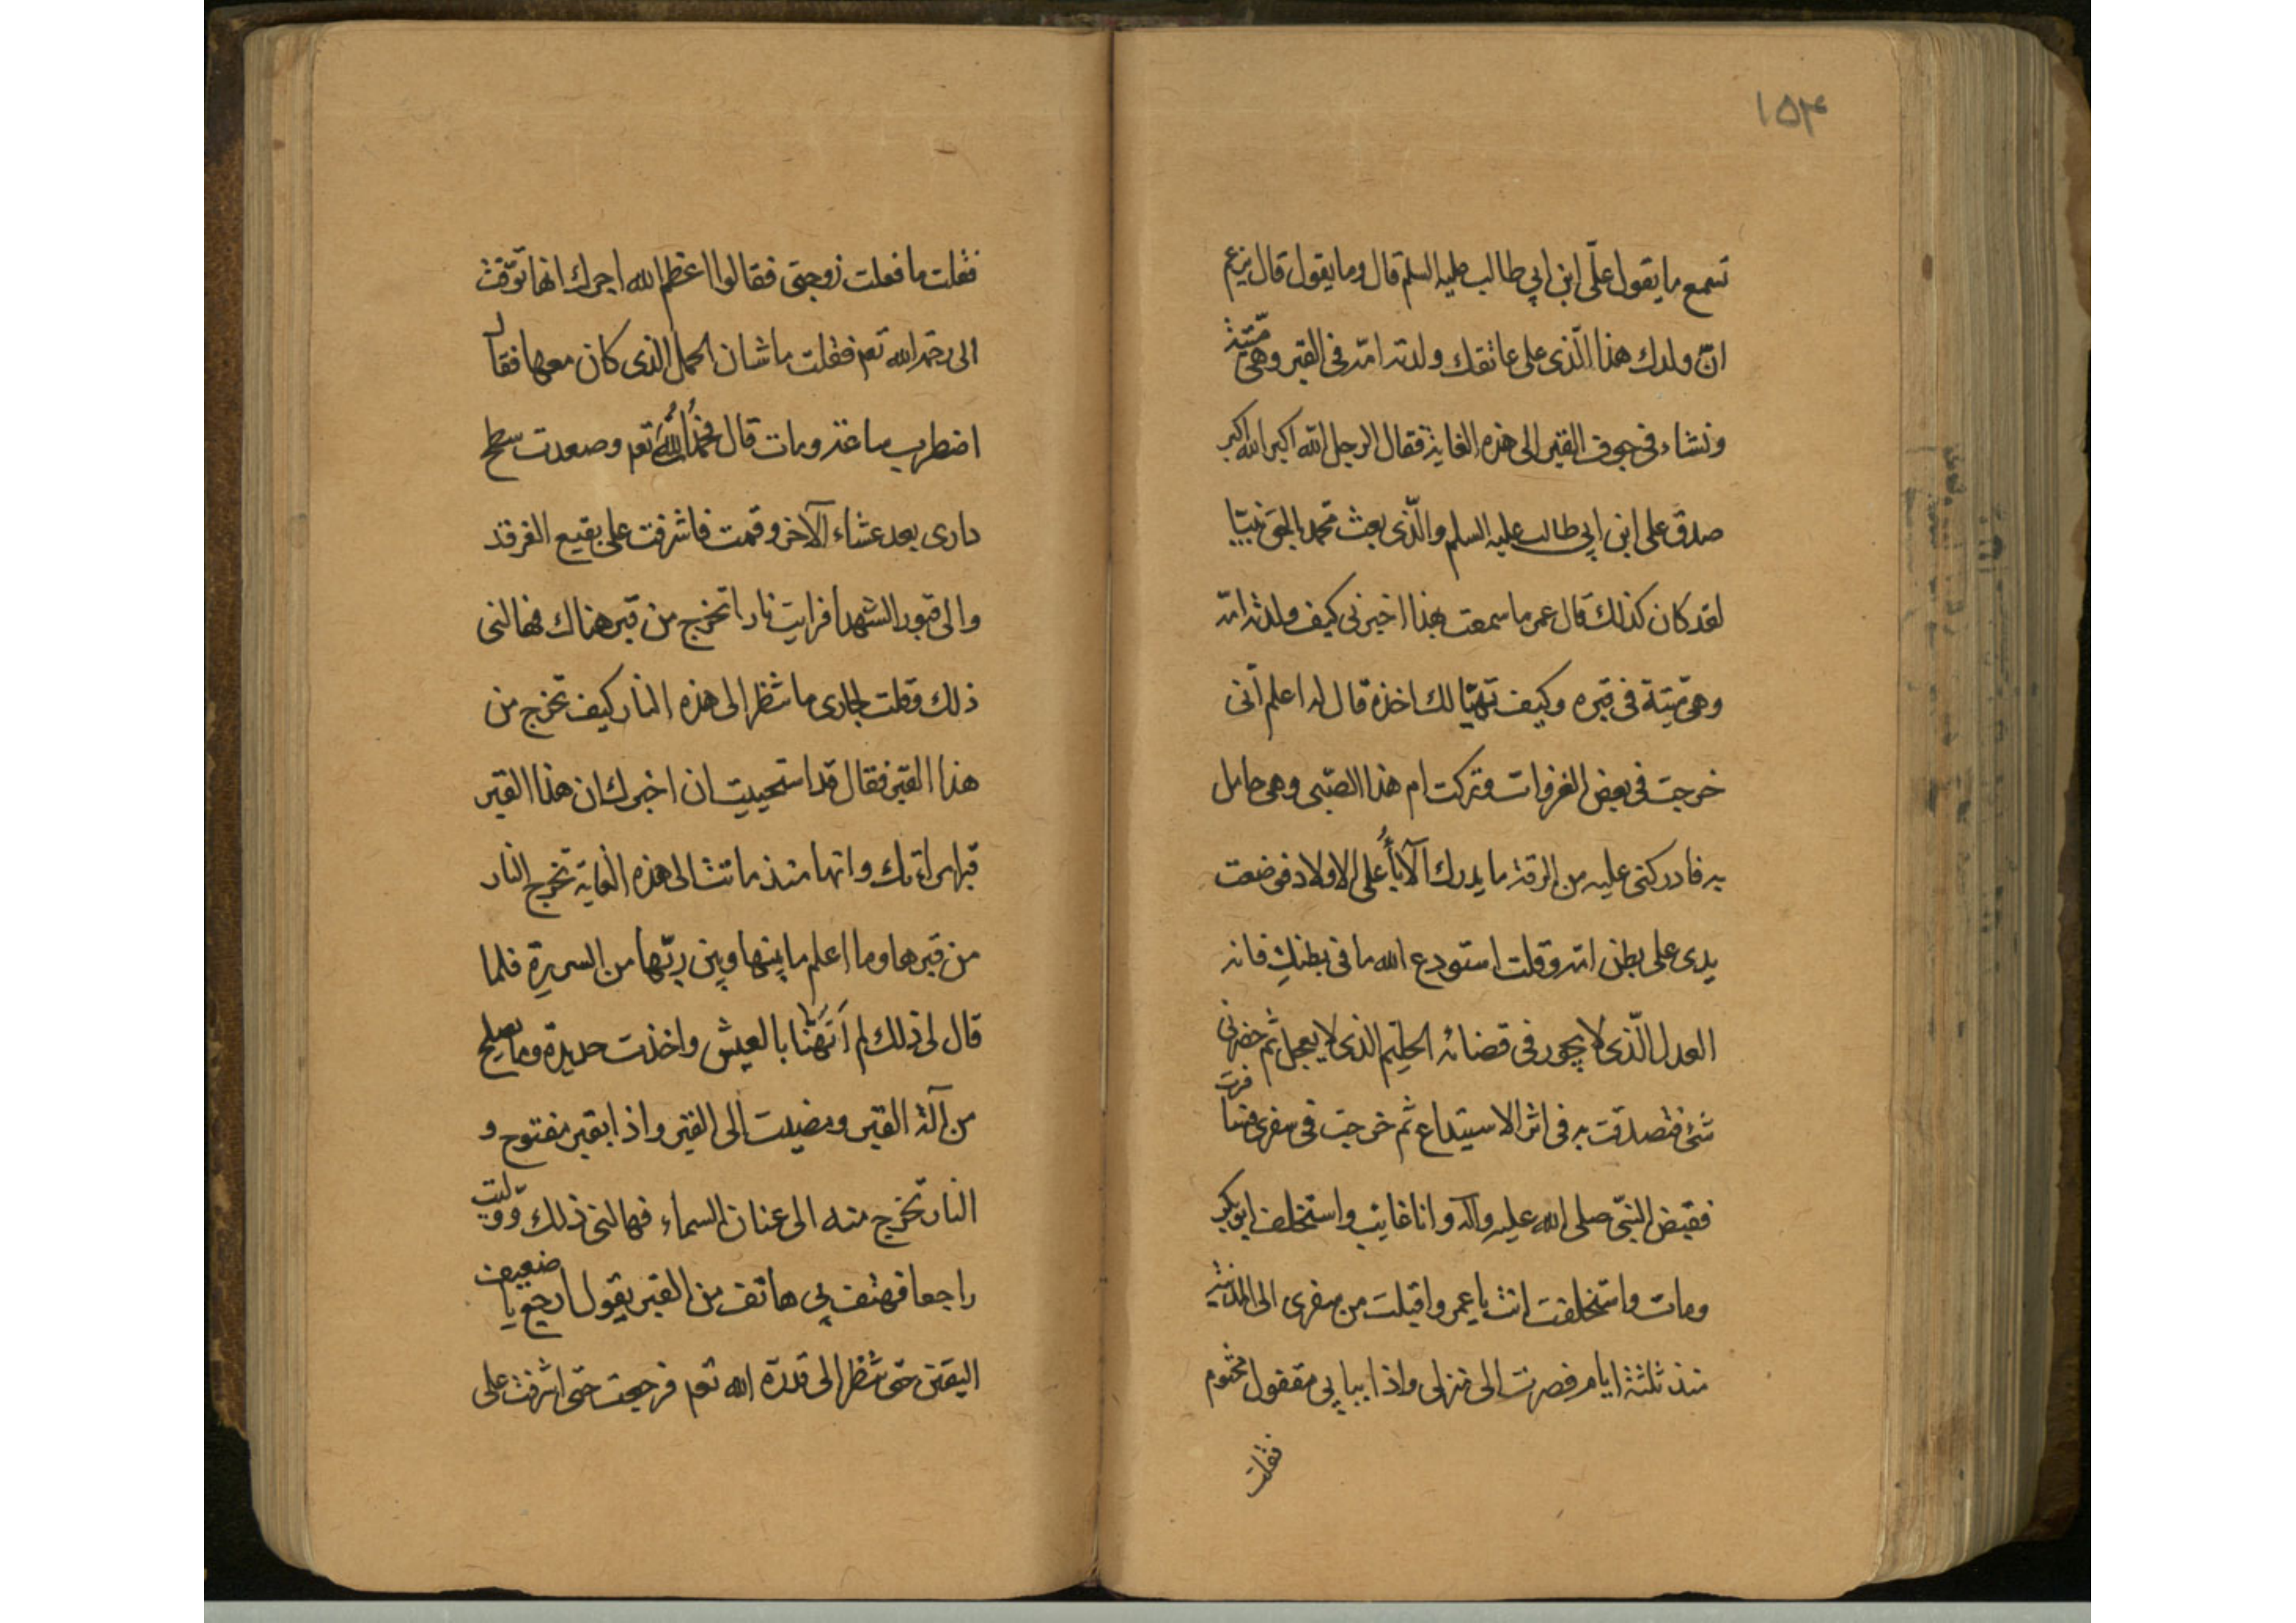 ١٥٤
تسمع ما يقول علّى ابن ابي طالب عليه السلم قال وما يقول قال يزعم
انّ ولدك هذا الّذى على عاتقك ولدته امّه فى القبر وهى ميّتة
ونشاء فى جوف القبر الى هذه الغاية فقال الرجل الله اكبر الله اكبر
صدق على ابن ابي طالب عليه السلم والّذى بعث محمد بالحق نبيّا
لقد كان كذلك قال عمر ما سمعت بهذا اخبرنى كيف ولدته امّه
وهى ميّتة فى قبره وكيف تهيّا لك اخذه قال له اعلم انّى
خرجت فى بعض الغزوات وتركت ام هذا الصبّى وهى حامل
به فادركنى عليه من الرقة ما يدرك الآباُء على الاولاد فوضعت
يدى على بطن امّه وقلت استودع الله ما فى بطنكِ فانه
العدل الّذى لا يجور فى قضائه الحليم الذى لا يعجل ثم حضرنى
شئ فتصدقت به فى اثر الاستيداع ثم خرجت فى سفرى
فقبض النبّى صلى الله عليه وآله وانا غايب واستخلف ابو بكر
ومات واستخلفت انت يا عمر واقبلت من سفرى الى المدينة
منذ ثلثة ايام فصرت الى منزلى واذا ببابي مقفول مختوم
فقلت
فقلت ما فعلت زوجتى فقالوا اعظم الله اجرك انها توّفت
الى رحمة الله تعم فقلت ما شان الحمل الذى كان معها فقال
اضطرب ساعة ومات قال فحمدُت اللهَُ تعم وصعدت سطح
دارى بعد عشاء الآخر وقمت فاشرفت على بقيع الغرقد
والى قبور الشهدا فرايت نارا تخرج من قبر هناك فهالنى
ذلك وقلت لجارى ما تنظر الى هذه النار كيف تخرج من
هذا القبر فقال قد استحييت ان اخبرك ان هذا القبر
قبر امراتك وانها منذ ماتت الى هذه الغاية تخرج النار
من قبرها وما اعلم ما بينها وبين ربّها من السريرة فلما
قال لى ذلك لم اَتَهَنّا بالعيش واخذت حديدة وما يصلح
من آلة القبر ومضيت الى القبر واذا بقبر مفتوح و
النار تخرج منه الى عنان السماء فهالنى ذلك وولّيت
راجعا فهتف بي هاتف من القبر يقول ارجع يا ضعيف
اليقين حتى تنظر الى قدرة الله تعم فرجعت حتى اشرفت على